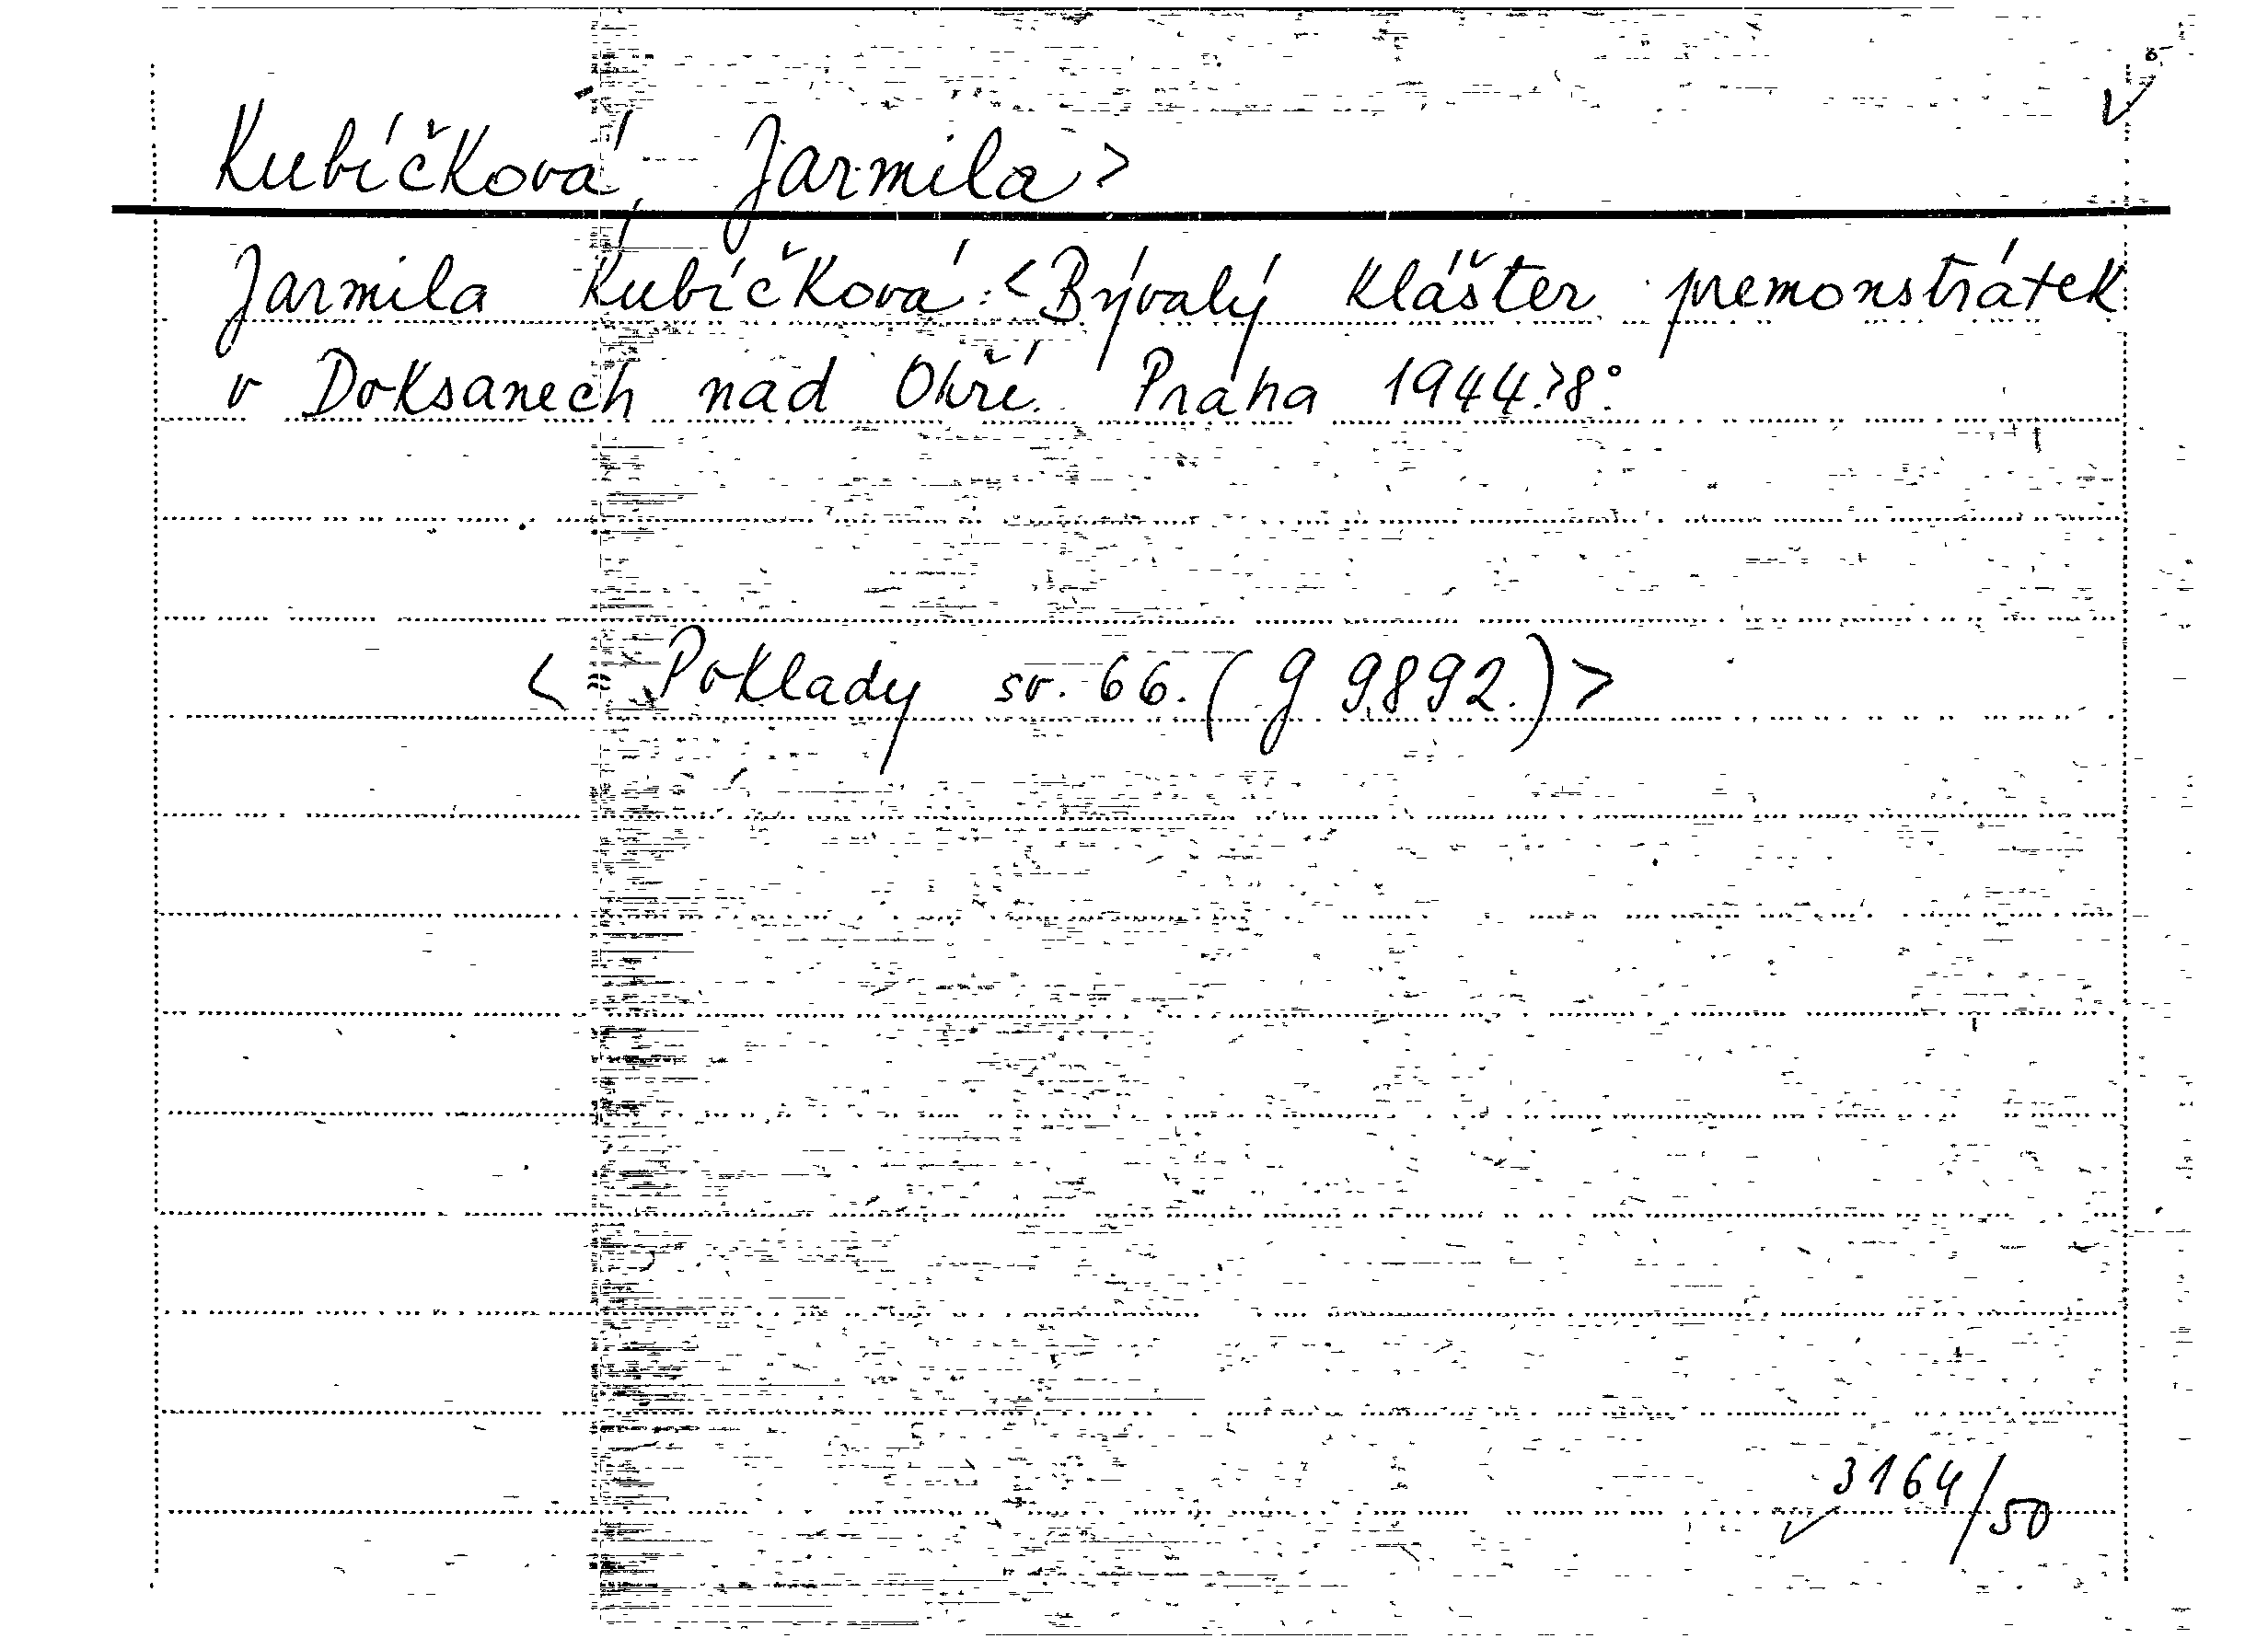 Kubíčková, Jarmila>
Jarmila Kubíčková: <Bývalý klášter premonstrátek
v Doksanech nad Ohří. Praha 1944.>8°.
< = Poklady sv. 66. (g 9892.) >
3164/50